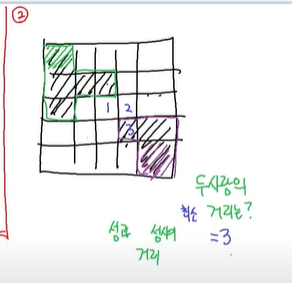 ②
1 2
3
두사람의
최소 거리는?
=3
성과 성사이
거리